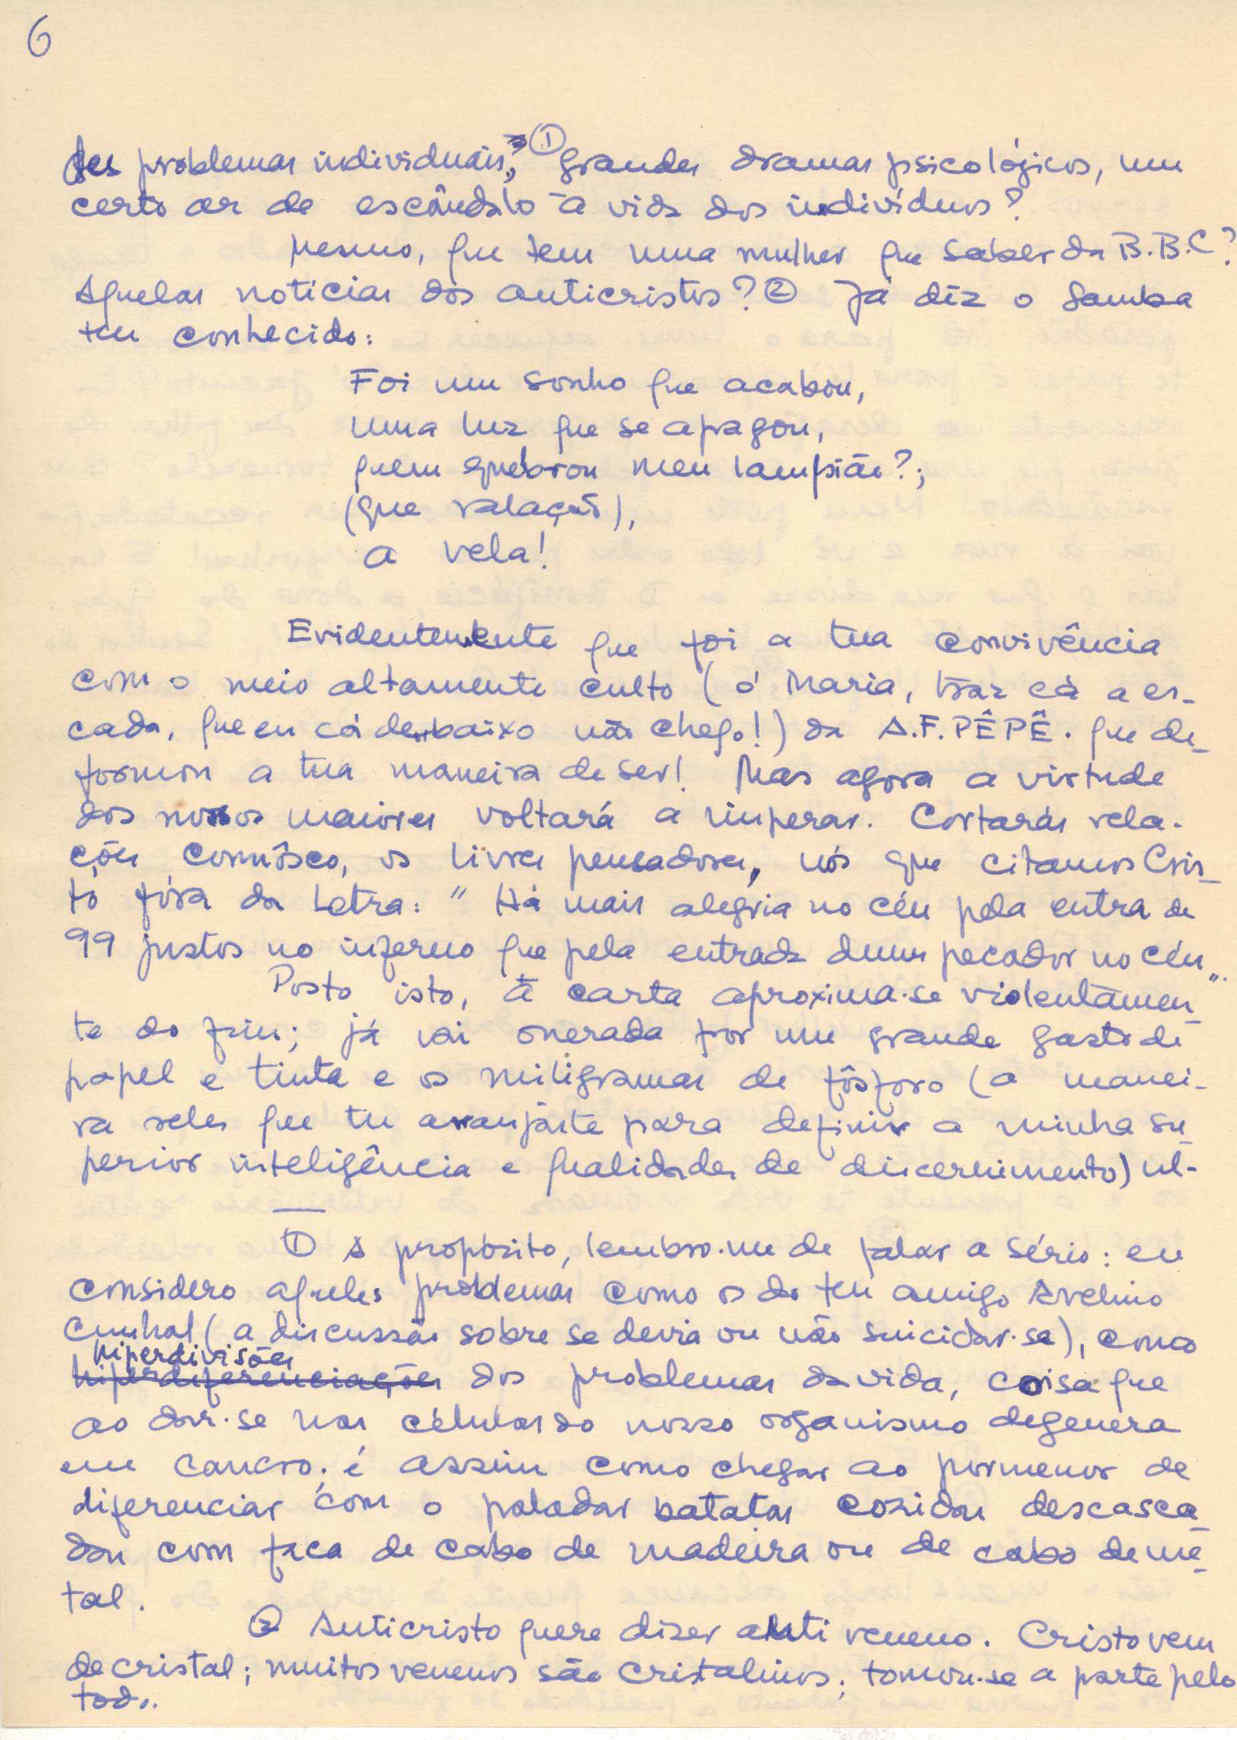 6
des problemas individuais, ① grandes dramas psicológicos, um
certo ar de escândalo à vida dos indivíduos?
Mesmo, que tem uma mulher que saber da B.B.C?
Aquelas notícias dos anticristos? ② Já diz o samba
teu conhecido:
Foi um sonho que acabou,
uma luz que se apagou,
quem quebrou meu lampião?;
(que ralação),
a vela!
Evidentemente que foi a tua convivência
com o meio altamente culto (ó Maria, traz cá a es-
cada, que eu cá de baixo não chego!) da A.F.PÊPÊ. que de-
formou a tua maneira de ser! Mas agora a virtude
dos nossos maiores voltará a imperar. Cortarás rela-
ções connôsco, os livres pensadores, nós que citamos Cris-
to fóra da Letra: "Há mais alegria no céu pela entra de
99 justos no inferno que pela entrada dum pecador no céu".
Posto isto, a carta aproxima-se violentamen-
te do fim; já vai onerada por um grande gasto de
papel e tinta e os miligramas de fósforo (a manei-
ra reles que tu arranjaste para definir a minha su-
perior inteligência e qualidades de discernimento) ul-
① A propósito, lembro-me de falar a sério: eu
considero aqueles problemas como os do teu amigo Avelino
Cunhal (a discussão sobre se devia ou não suicidar-se), como
hiperdivisões
hiperdiferenciações dos problemas da vida, coisa que
ao dar-se nas células do nosso organismo degenera
em cancro; é assim como chegar ao pormenor de
diferenciar com o paladar batatas cozidas descasca-
das com faca de cabo de madeira ou de cabo de me-
tal.
② Anticristo quere dizer anti veneno. Cristo vem
de cristal; muitos venenos são cristalinos; tomou-se a parte pelo
todo.